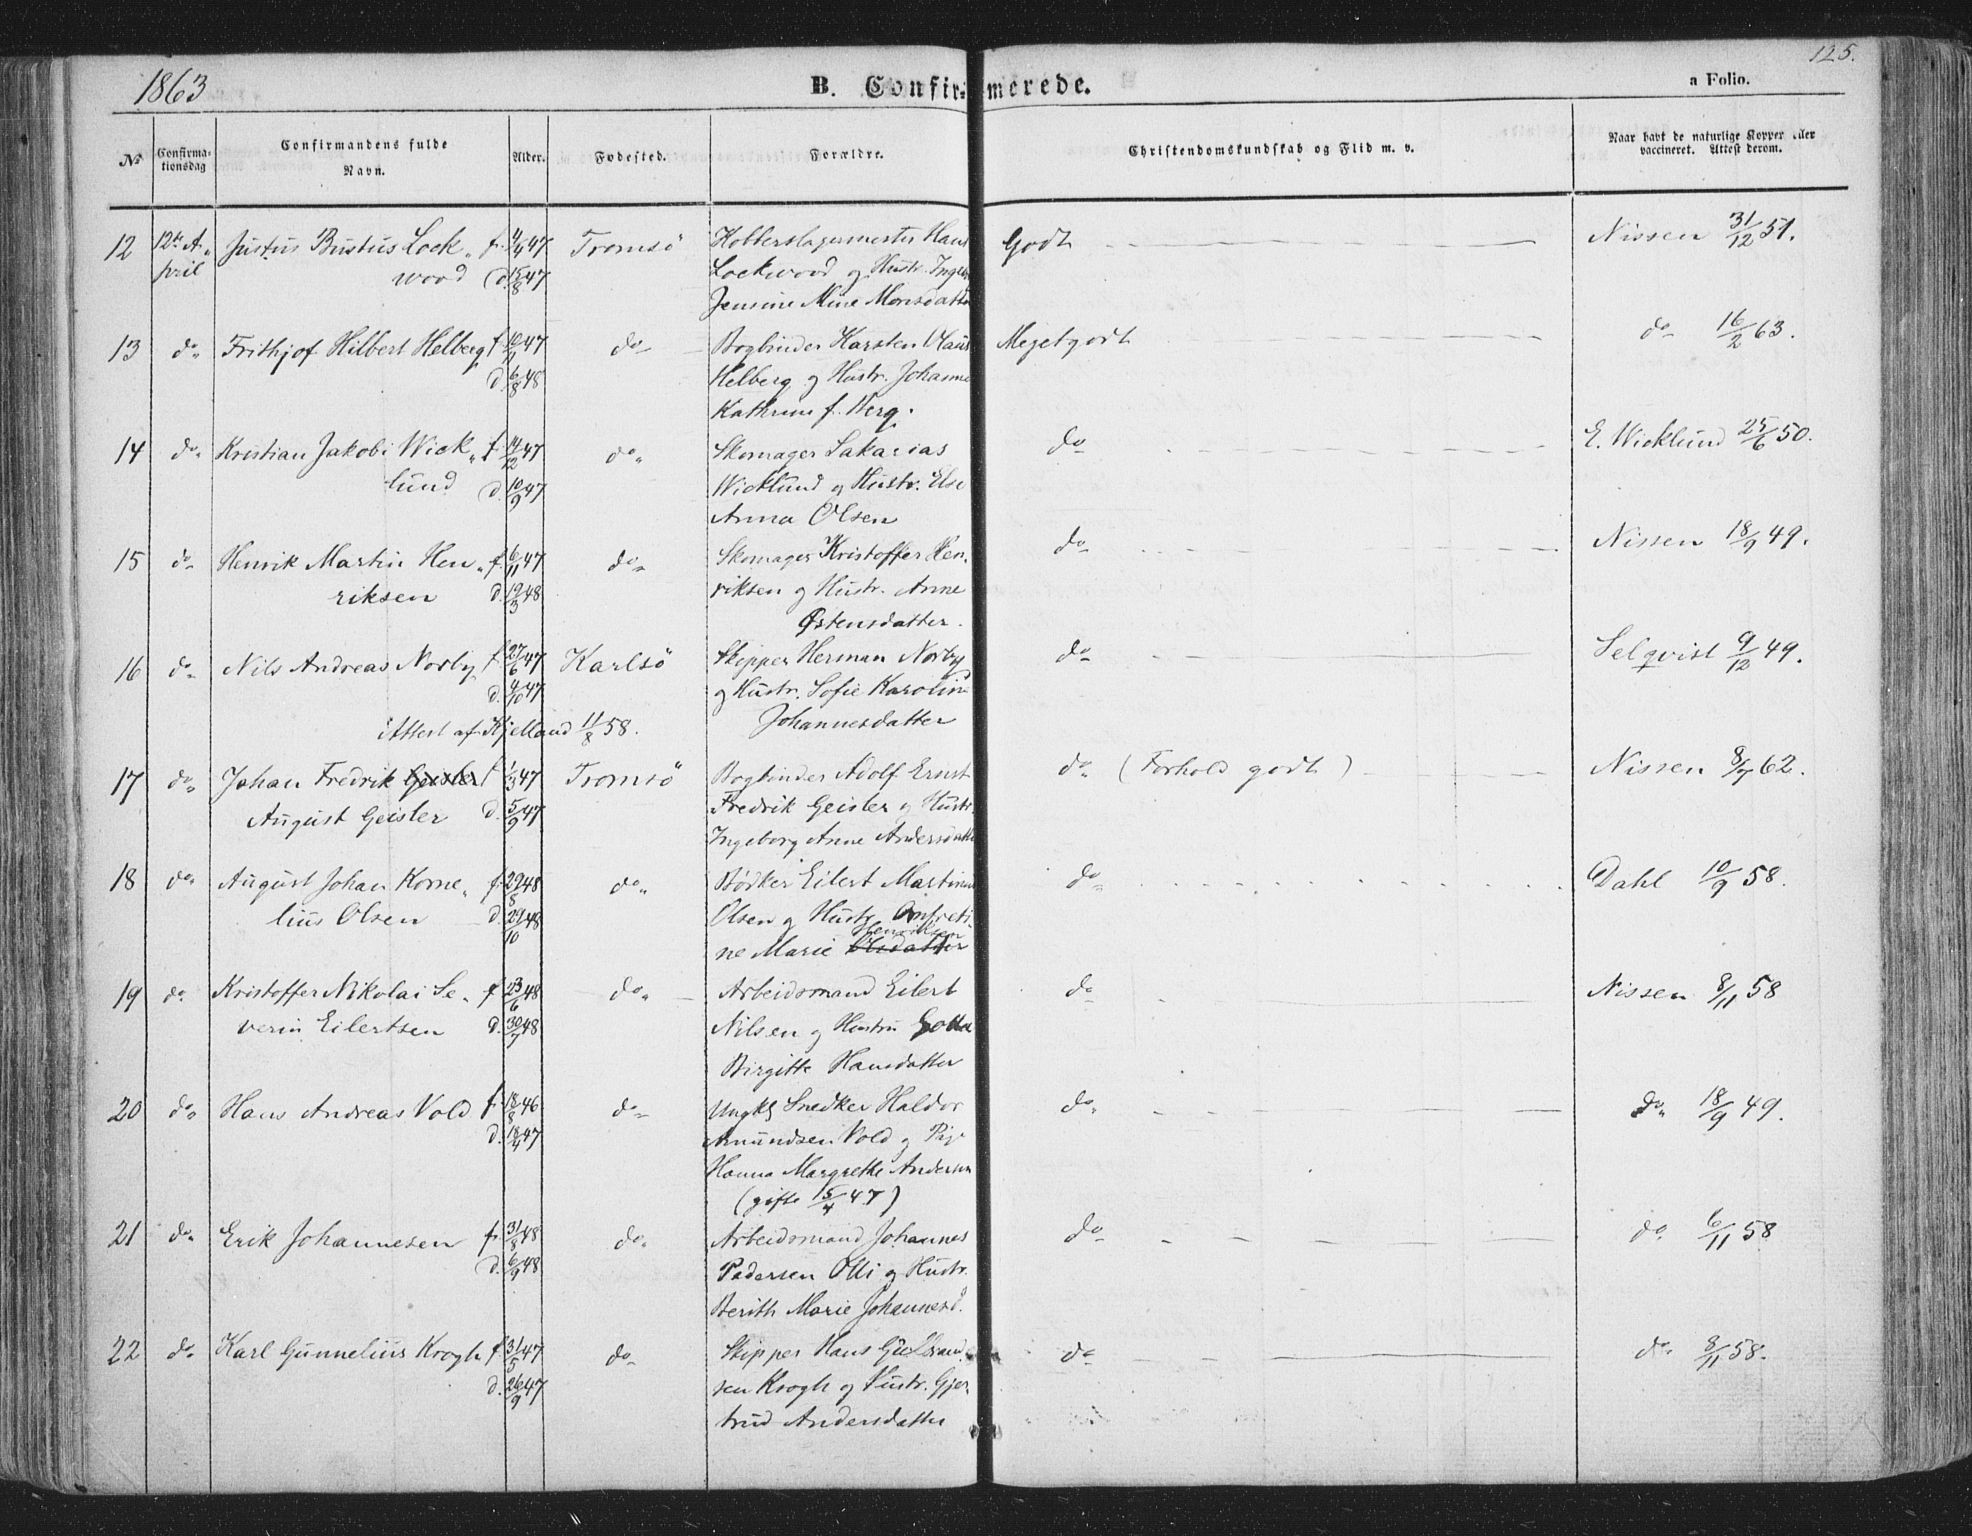 1863 B. Confirmerede. a Folio. 125.
No Confirmationsdag Confirmandens fulde Navn. Alder. Fodested. Forældre. Christendomskundskab og Flid m. v. Naar havt de naturlige Kopper eller vaccineret. Attest derom.
12 12te A- Justus Bustus Lock- f. 4/4 47 Tromsö Kobberslagermester Hans Godt Nissen 31/12 51.
pril wood d. 15/8 47 Lockwood og Hustr. Ingeb
Jensine Mine Monsdatte
13 do Frithjof Hilbert Helberg f. 10/11 47 do Bogbinder Karsten Claus Meget godt do 16/2 63.
d. 6/8 48 Helberg og Hustr. Johanne
Kathrine f. Berg.
14 do Kristian Jakobi Wick- f. 14/2 47 do Skomager Sakarias do E. Wicklund 25/6 50.
lund d. 10/9 47 Wicklund og Hustr. Else
Anna Olsen
15 do Henrik Martin Hen- f. 6/11 47 do Skomager Kristoffer Hen- do Nissen 18/9 49.
riksen d. 19/3 48 riksen og Hustr. Anne
Østensdatter.
16 do Nils Andreas Norby f. 27/6 47 Karlsö Skipper Herman Norby do Selqvist 9/12 49.
d. 4/10 47 og Hustr. Sofie Karoline
Attest af Kjelland 11/8 58. Johannesdatter
17 do Johan Fredrik Geisler f. 1/3 47 Tromsö Bogbinder Adolf Ernst do (Forhold godt) Nissen 8/7 62.
August Geisler d. 5/9 47 Fredrik Geisler og Hustr.
Ingeborg Anne Andersdatt
18 do August Johan Korne- f. 29/8 48 do Bödker Eilert Martinus do Dahl 10/9 58.
lius Olsen d. 29/10 48 Olsen og Hustr.
Henriksen
ne Marie Olsdatter
19 do Kristoffer Nikolai Se- f. 23/6 48 do Arbeidsmand Eilert do Nissen 8/11 58
verin Eilertsen d. 30/7 48 Nilsen og Hustru
Birgitte Hansdatter
20 do Hans Andreas Vold f. 18/8 46 do Ungkl Snedker Haldor do do 18/9 49.
d. 18/4 47 Amundsen Vold og Pige
Hanna Margrethe Andersen
(gifte 15/4 47)
21 do Erik Johannesen f. 31/8 48 do Arbeidsmand Johannes do do 6/11 58
d. 6/9 48 Pedersen Olli og Hustr.
Berith Marie Johannesd.
22 do Karl Gunnelius Krogh f. 31/5 47 do Skipper Hans Gulbrand- do do 8/11 58.
d. 26/9 47 sen Krogh og Hustr. Gjer-
trud Andersdatter